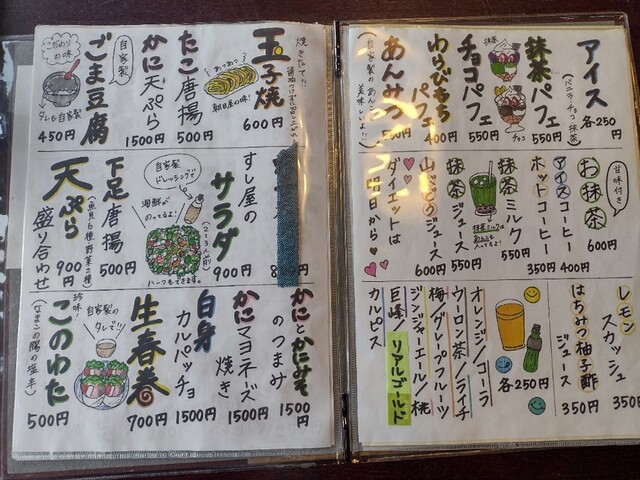 アイス
(バニラ・チョコ・抹茶)
各250円
抹茶パフェ
550円
抹茶
チョコ
チョコパフェ
550円
わらびもちパフェ
400円
あんみつ
(自家製のあんこ
美味しいよ!!)
お抹茶
甘味付き
600円
アイスコーヒー
400円
ホットコーヒー
350円
抹茶ミルク
550円
抹茶ミルクは
あんみつ
抹茶ジュース
550円
ジュース
600円
ダイエットは
明日から
レモンスカッシュ
350円
はちみつ柚子酢ジュース
350円
各250円
オレンジ/コーラ
ウーロン茶/ライチ
梅/グレープフルーツ
ジンジャーエール/桃
巨峰/リアルゴールド
カルピス
玉子焼
焼きたて!!
600円
あつあつ
朝日屋の味!
たこ唐揚
500円
かに天ぷら
1500円
自家製
ごま豆腐
450円
こだわりの味
タレも自家製
すし屋のサラダ
900円
(2~3人前)
自家製ドレッシングで
海鮮がのってるよ!
ハーフもできます。
下足唐揚
500円
天ぷら盛り合わせ
(魚貝6種 野菜2種)
900円
かにとかにみそのつまみ
1500円
かにマヨネーズ焼き
1500円
白身カルパッチョ
1500円
生春巻
700円
自家製のタレで!!
珍味!
このわた
(なまこの腸の塩辛)
500円